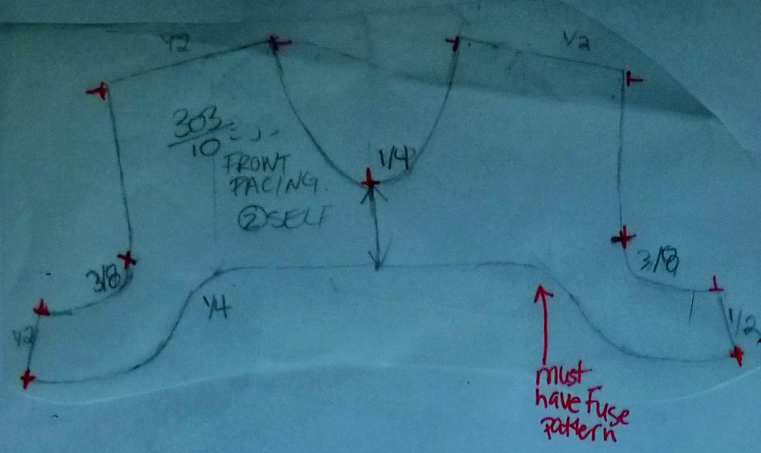 1/2
1/2
303
10
FRONT
FACING
② SELF
1/4
3/8
3/8
1/4
1/2
1/2
must
have Fuse
pattern